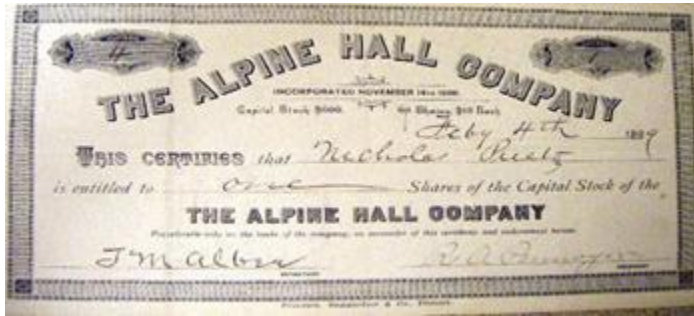 4
1
THE ALPINE HALL COMPANY
INCORPORATED NOVEMBER
Capital Stock $600. 60 Shares, $10 Each
Feby 4th 1889
THIS CERTIFIES that Nicholas
is entitled to one Shares of the Capital Stock of the
THE ALPINE HALL COMPANY
Transferable only on the books of the company, on surrender of this certificate and endorsement hereon.
SECRETARY
PRESIDENT